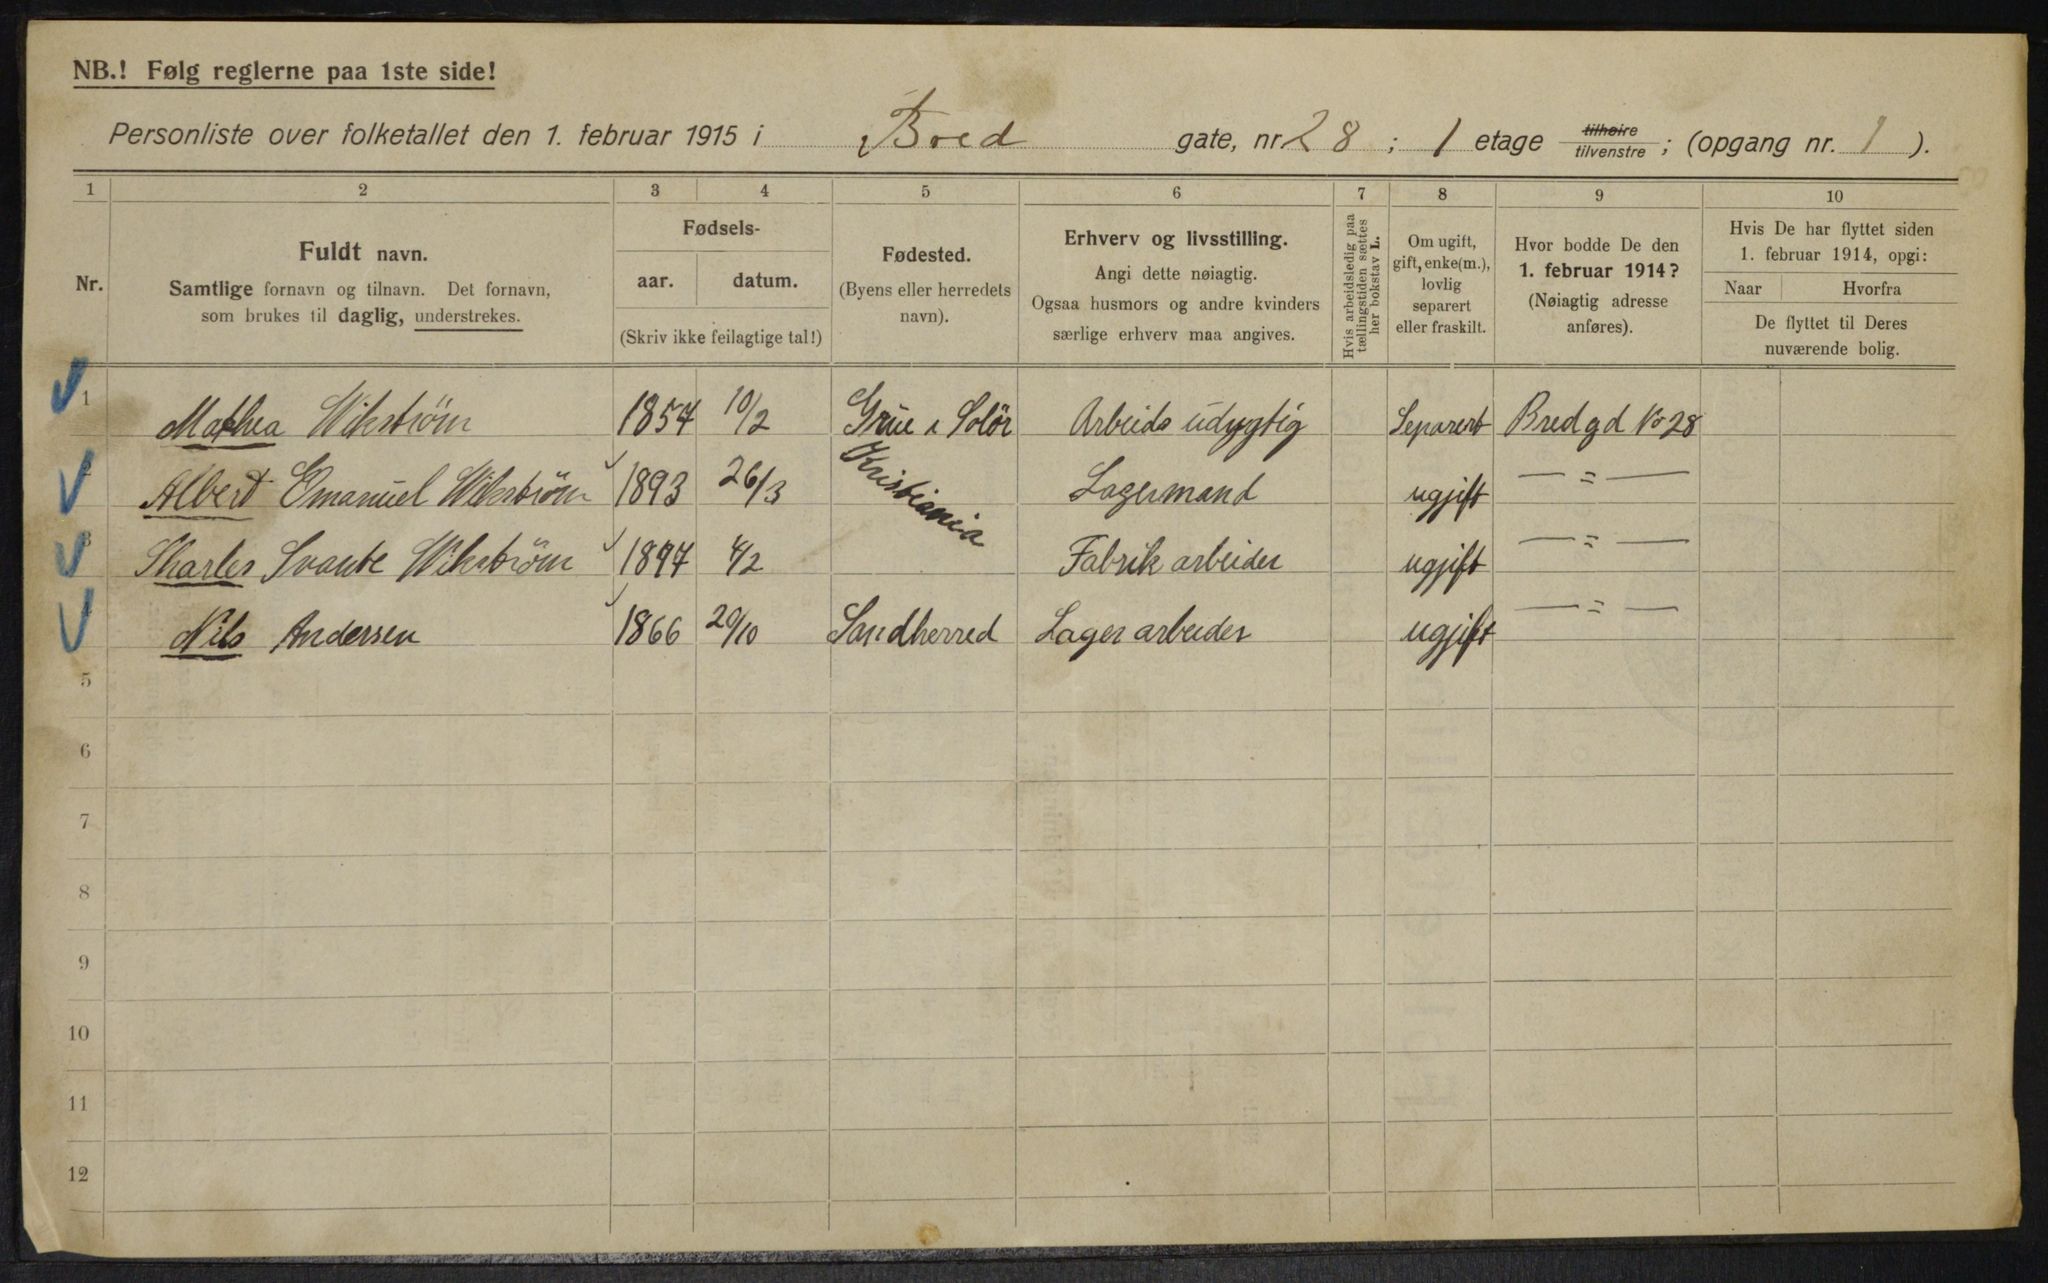 NB.! Følg reglerne paa 1ste side!
Personliste over folketallet den 1. februar 1915 i Bred gate, nr. 28 ; 1 etage tilhøire tilvenstre ; (opgang nr. 1 ).
1 2 3 4 5 6 7 8 9 10
Nr.
Fuldt navn.
Samtlige fornavn og tilnavn. Det fornavn,
som brukes til daglig, understrekes.
Fødsels-
aar. datum.
(Skriv ikke feilagtige tal!)
Fødested.
(Byens eller herredets
navn).
Erhverv og livsstilling.
Angi dette nøiagtig.
Ogsaa husmors og andre kvinders
særlige erhverv maa angives.
Hvis arbeidsledig paa
tællingstiden sættes
her bokstav L.
Om ugift,
gift, enke(m.),
lovlig
separert
eller fraskilt.
Hvor bodde De den
1. februar 1914?
(Nøiagtig adresse
anføres).
Hvis De har flyttet siden
1. februar 1914, opgi:
Naar Hvorfra
De flyttet til Deres
nuværende bolig.
1 Mathea Wikstrøm 1857 10/2 Grue i Solör Arbeids udygtig Separert Bred gd No 28
2 Albert Emanuel Wikstrøm 1893 26/3 Kristiania Lagermand ugjift — " —
3 Sharles Svante Wikstrøm 1897 4/2 Fabrik arbeider ugjift — " —
4 Nils Andersen 1866 20/10 Sandherred Lager arbeider ugjift — " —
5
6
7
8
9
10
11
12